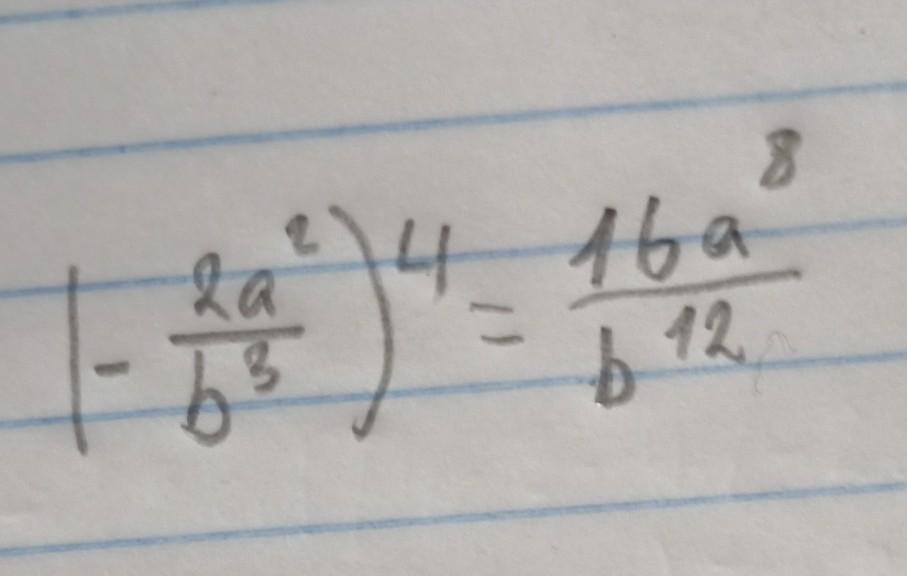 (-\frac{2a^2}{b^3})^4 = \frac{16a^8}{b^{12}}